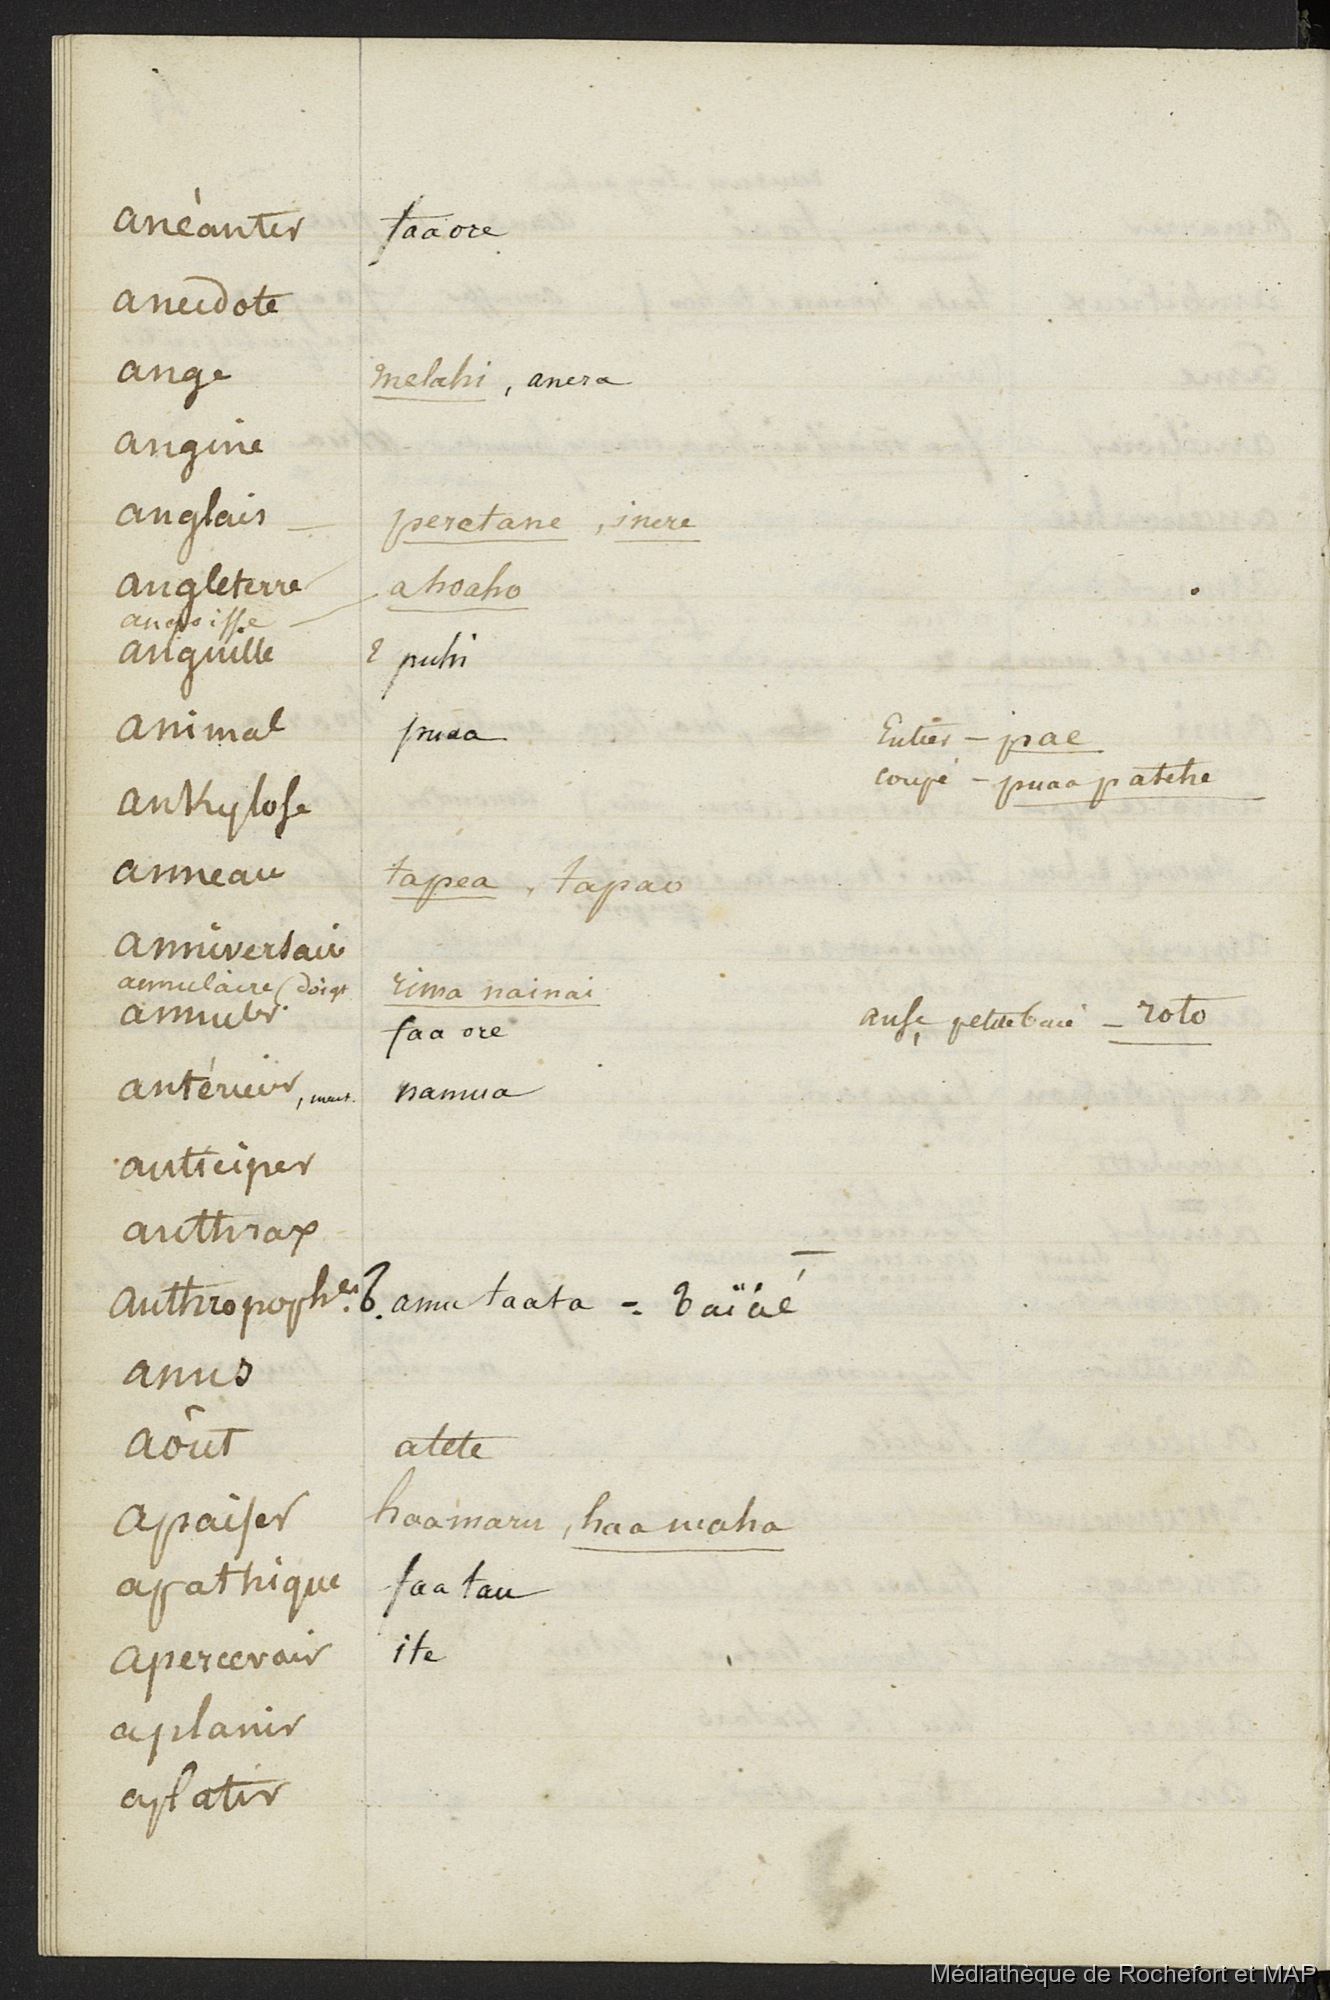 anéantir faaore
anecdote
ange melahi, anera
angine
anglais — peretane, inere
angleterre
angoisse — ahoaho
anguille puhi
animal puaa
Entier — pae
coupé — puaa patehe
ankylose
anneau tapea, tapao
anniversaire
annulaire (doigt rima nainai
annuler faa ore
anse, petite baie — roto
antérieur, namua
anticiper
anthrax
anthropophe. amu taata = Taïáé
anus
aôut atete
apaiser haamaru, haa maha
apathique faatau
apercevoir ite
aplanir
aplatir
Médiathèque de Rochefort et MAP